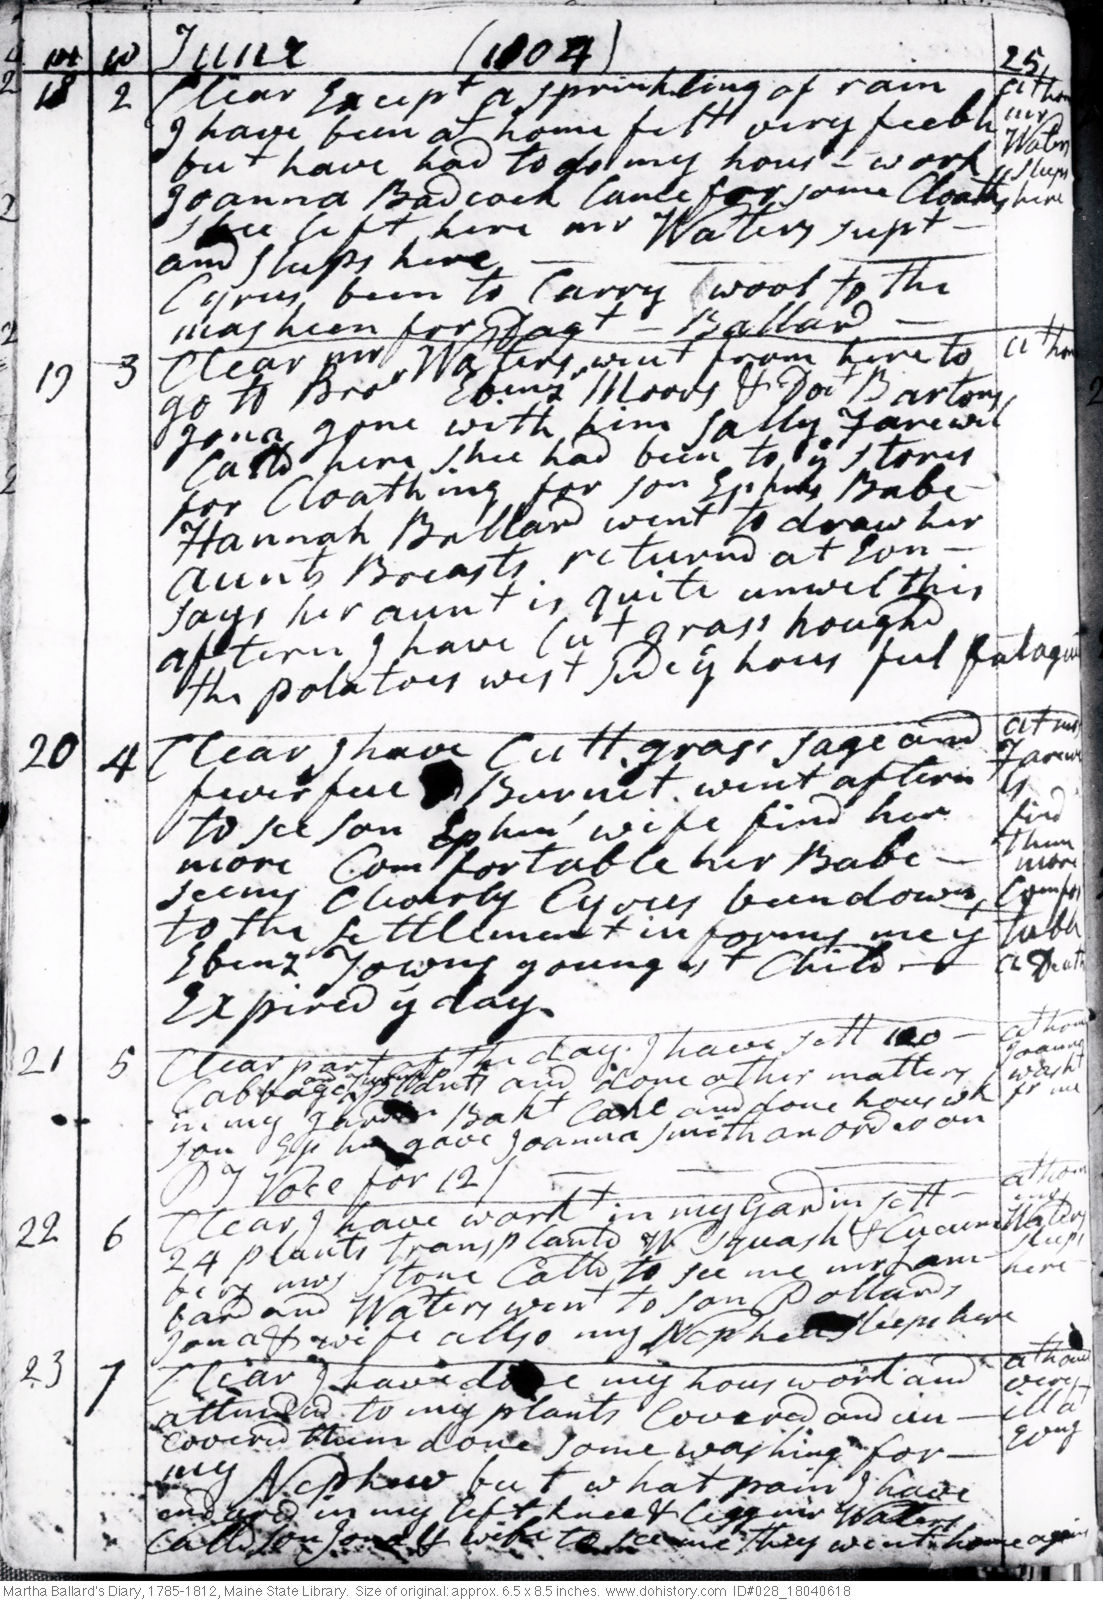 June (1804) 25
18 2 Clear Except a sprinkling of rain at home
I have been at home felt very feebl mr
but have had to do my hous - work Waters
Joanna Badcock Came for some Cloaths sleeps
shee left here mr Waters supt - here
and sleeps here
Cyrus been to Carry wool to the
masheen for Dagt - Ballard -
19 3 Clear mr Waters went from here to at home
go to Bror Ebenz Moors & Doct Bartons
Jona gone with him Sally Farewel
Calld here shee had been to ÿ stores
for Cloathing for son Ephms Babe
Hannah Ballard went to draw her
aunts Breasts returnd at Evn -
says her aunt is quite unwel this
aftern I have Cut grass houghd
the potatoes west side ÿ hous feel fatagud
20 4 Clear I have Cutt grass sage and at mrs
feverfue Burnet went aftern Farewels
to see son Ephm' wife find her find
more Comfortable her Babe - them more
seems Cleverly Cyrus been down Comfor
to the settlement informs me ÿ table
Ebenz Towns youngest Child - a Death
Expired ÿ day.
21 5 Clear part of the day. I have sett at home
Cabbage and turnip plants and done other matters Joanna
in my garden Bakt Cake and done hous wk washt
son Ephm gave Joanna Smith an order on for me
P T Voce for 12/
22 6 Clear, I have workt in my gardin sett - at home
24 plants transplantd Squash & Cucum mr Waters
bers mrs Stone Calld to see me mr Lam sleeps
bard and Waters went to son Pollards here
Jona & wife allso my Nephew sleeps here
23 7 Clear I have done my hous work and at home
attended to my plants Covered and un - very
covered them done some washing for - ill at
my Nephew but what pain I have
endured in my left knee & Legg mr Waters
Calld son Jona & wife to see me they went home again
Martha Ballard's Diary, 1785-1812, Maine State Library. Size of original: approx. 6.5 x 8.5 inches. www.dohistory.com ID#028_18040618